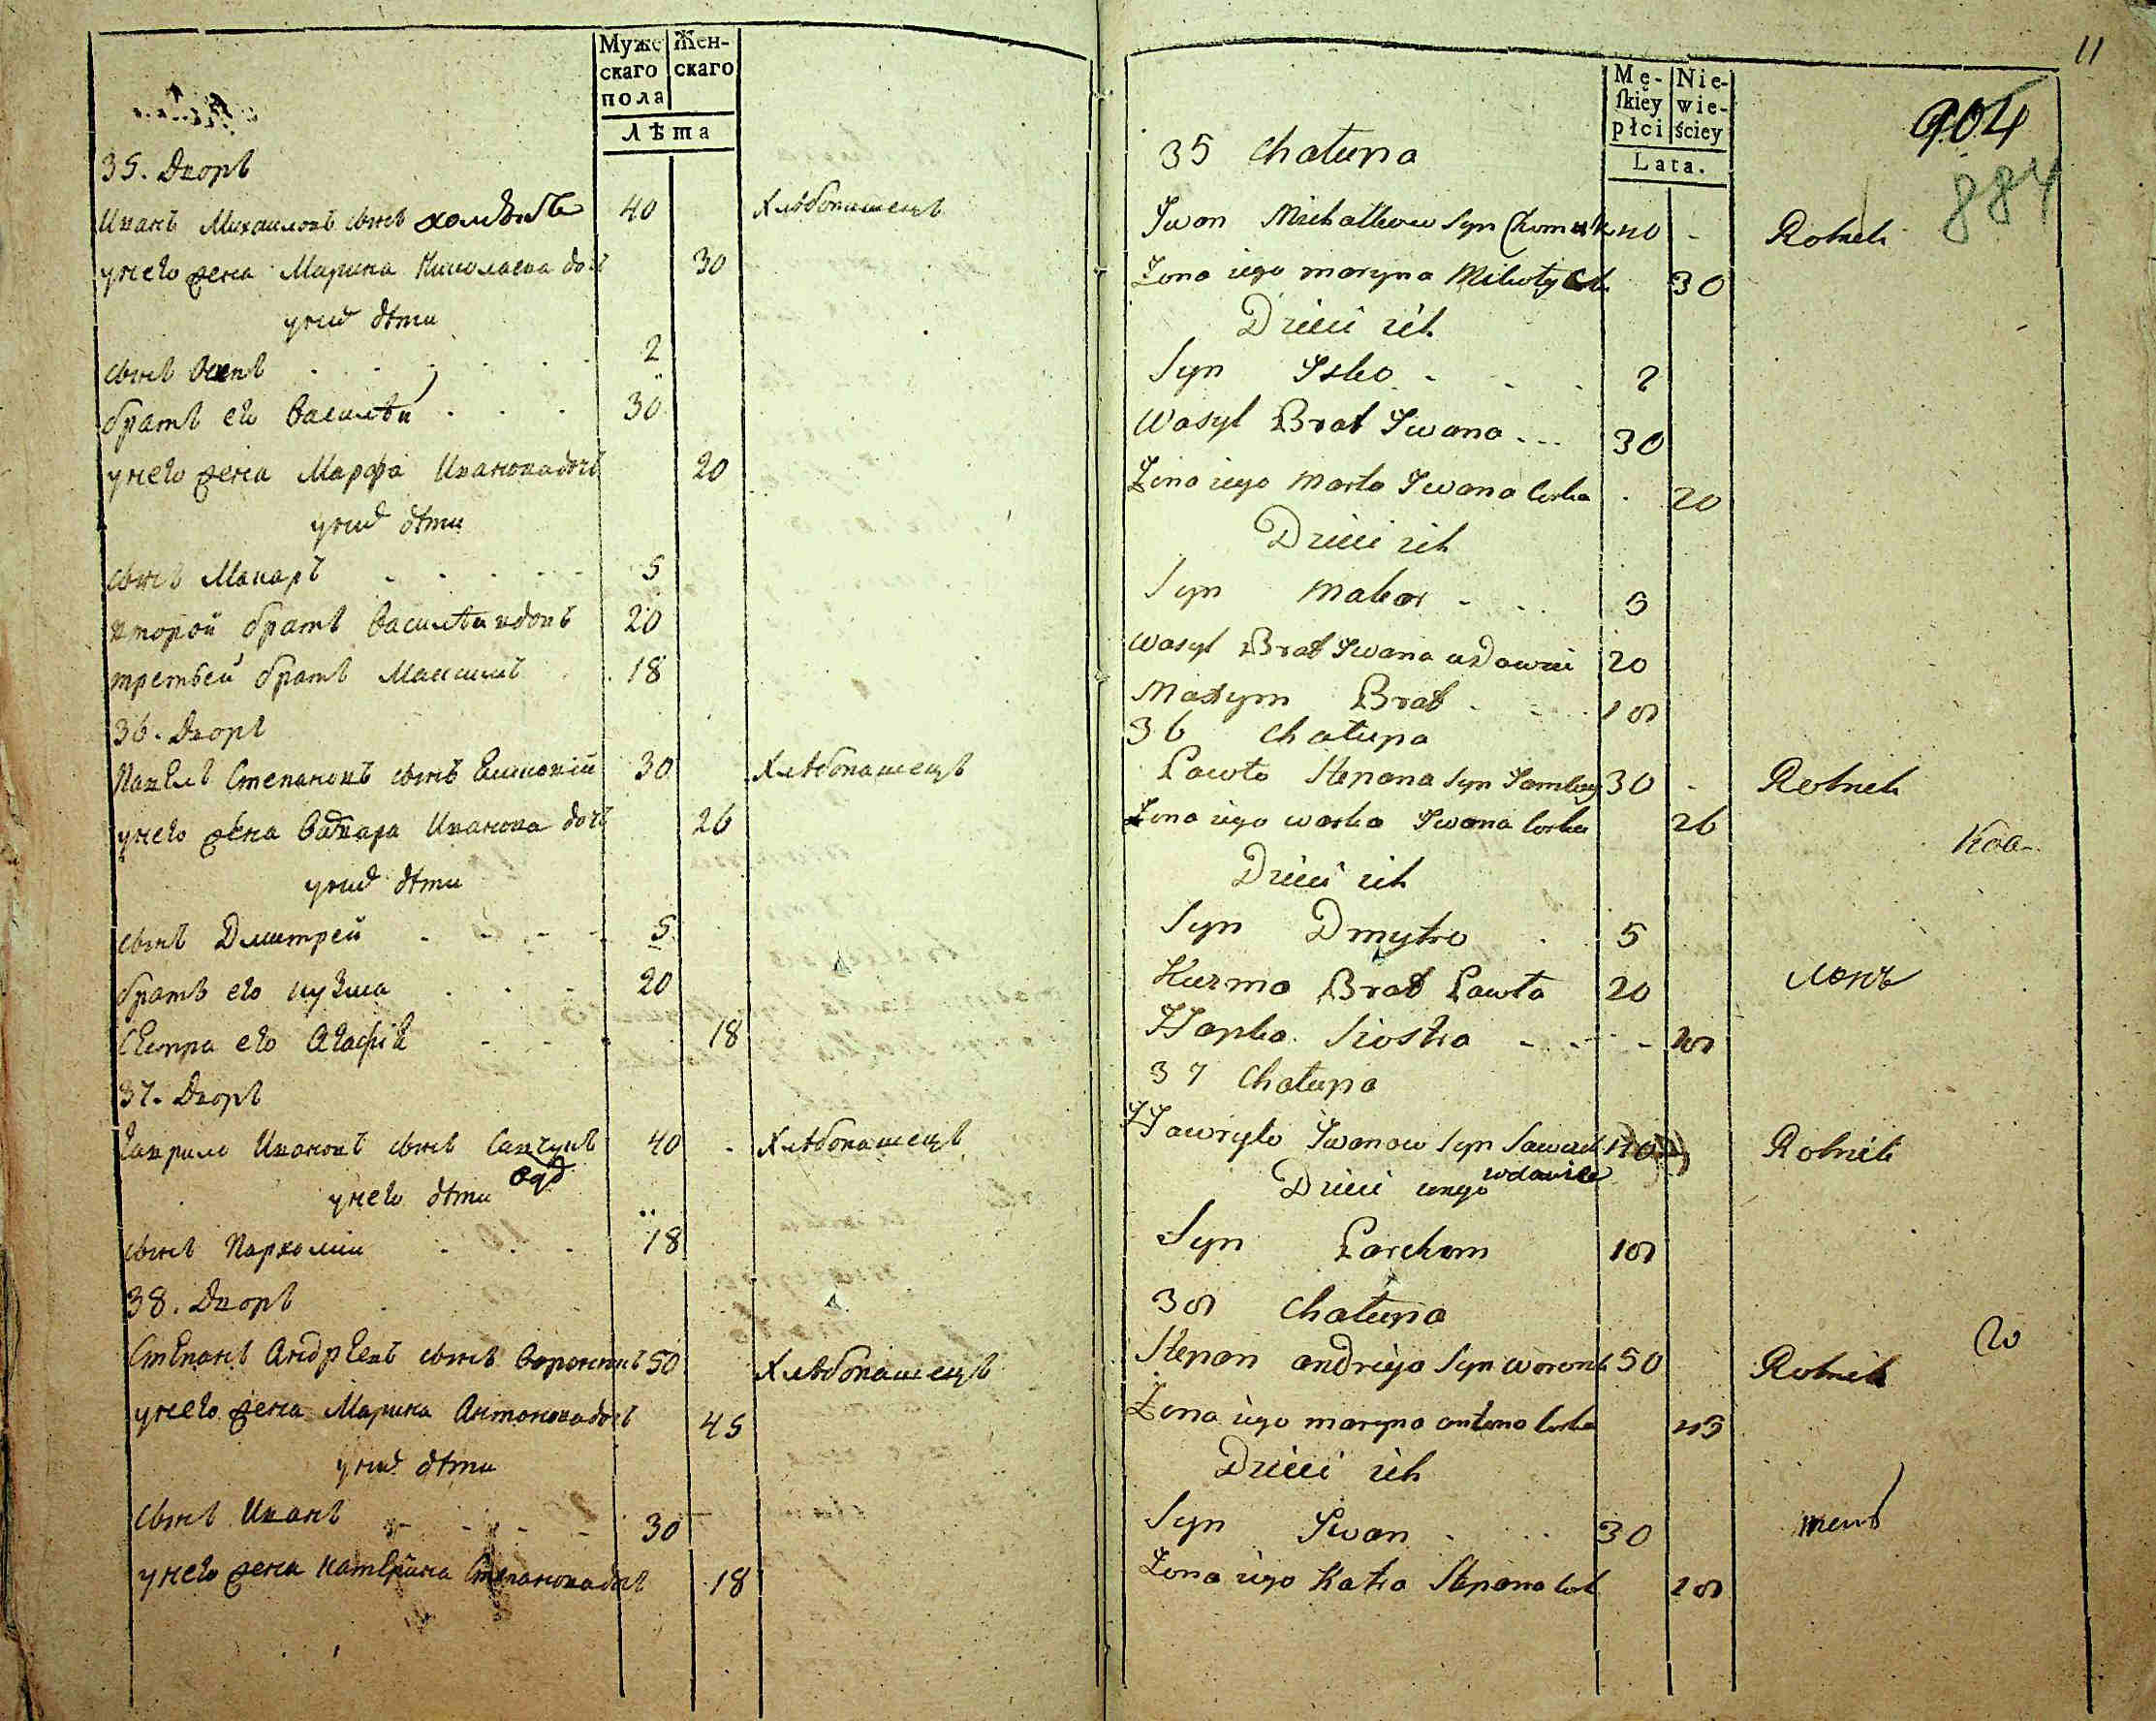 Мужескаго пола
Женскаго
лѣта
35. Дворъ
Иванъ Михаиловъ сынъ 40 Хлѣбопашецъ
унего жена Марина Николаева дочь 30
унихъ дѣти
сынъ Осипъ 2
братъ его Василѣй 30
унего жена Марфа Иванова дочь 20
унихъ дѣти
сынъ Макаръ 5
второй братъ Василѣй вдовъ 20
третьей братъ Максимъ 18
36. Дворъ
Павелъ Степановъ сынъ 30 Хлѣбопашецъ
унего жена Вадвара Иванова дочь 26
унихъ дѣти
сынъ Дмитрей 5
братъ его кузма 20
Сестра его Агафія 18
37. Дворъ
Гаврило Ивановъ сынъ Савчукъ 40 Хлѣбопашецъ
унего дѣти вдо
сынъ Пархомии 18
38. Дворъ
Степанъ Андреевъ сынъ 50 Хлѣбопашецъ
унего жена Марина Антонова дочь 45
унихъ дѣти
сынъ Иванъ 30
унего жена катерина Степанова дочь 18
11
904
884
Mę-ſkiey płci
Nie-wie-ściey
Lata.
35 Chałupa
Iwan Michałkow Syn 40 - Rolnik
Żona iego maryna Mikoły 30
Dzieci ich
Syn Isko 2
Wasyl Brat Iwana 30
Żona iego marta Iwana Corka 20
Dzieci ich
Syn makar 5
Wasyl Brat Iwana wdowiec 20
Maxym Brat 18
36 Chałupa
Pawło Stepana Syn 30 - Rolnik
Żona iego warka Iwana Corka 26
Dzieci ich
Syn Dmytro 5
Kuzma Brat Pawła 20
Hapka Siostra 18
37 Chałupa
Hawryło Iwanow Syn Sawczuk 40 Rolnik
Dzieci onego wdowiec
Syn Parchom 18
38 Chałupa
Stepan andrieja Syn 50 Rolnik
Żona iego maryna antona Corka 45
Dzieci ich
Syn Iwan 30
Żona iego Katra Stepana Cork 18